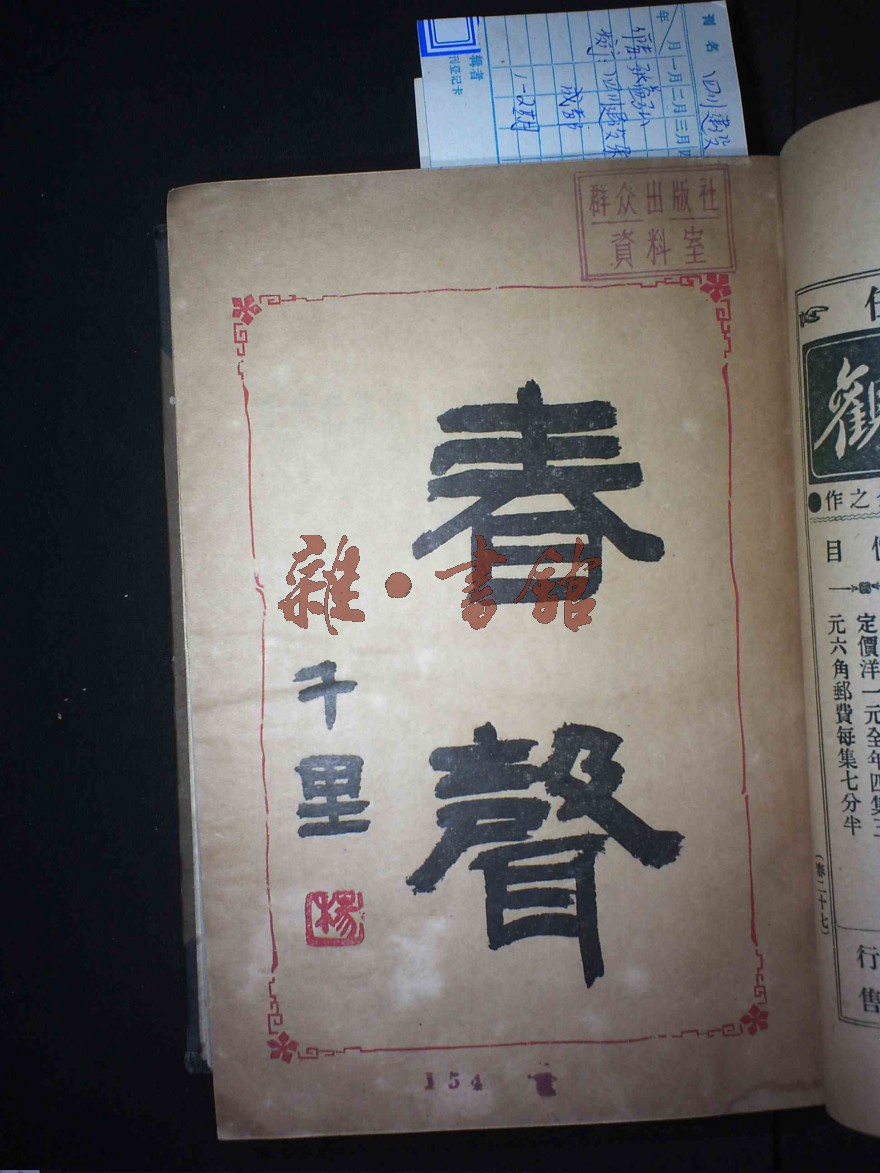 刊名 四川建设
年
月 一月 二月 三月 四
成都
1-2期
辑者
刊登记卡
群众出版社
資料室
春聲
千里
楊
雜·書館
154
觀
作之
目
定價洋一元全年四集三
元六角郵費每集七分半
(春二十七)
行
售